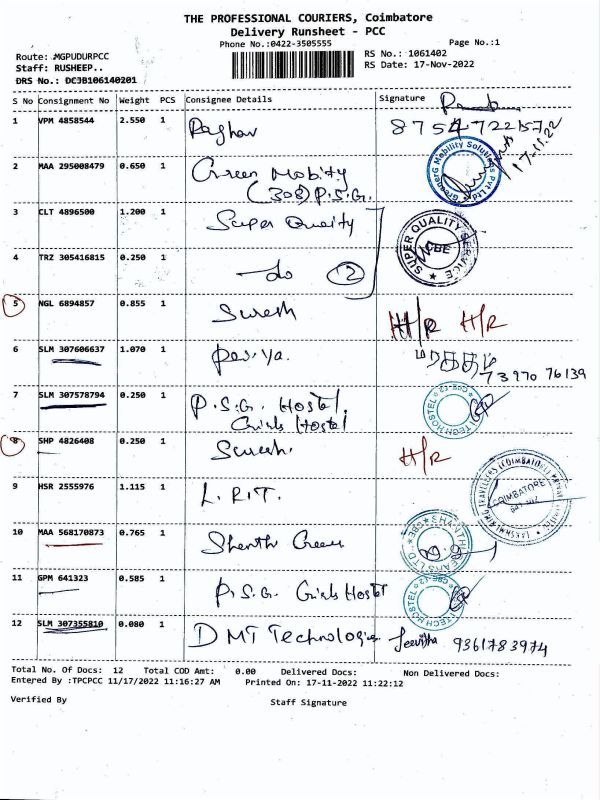 THE PROFESSIONAL COURIERS, Coimbatore
Delivery Runsheet - PCC
Phone No.:0422-3505555
Page No.:1
Route: .MGPUDURPCC
RS No.: 1061402
Staff: RUSHEEP..
RS Date: 17-Nov-2022
DRS No.: DCJB106140201
S No Consignment No Weight PCS Consignee Details Signature
1 VPM 4858544 2.550 1 Raghav
17.11.22
2 MAA 295008479 0.650 1 Green Mobity
(308) P.S.G.
GreenerG Mobility Solutions Pvt Ltd
3 CLT 4896500 1.200 1 Super Quality
SUPER QUALITY SERVICE CBE
4 TRZ 305416815 0.250 1 - do 12
5 NGL 6894857 0.855 1 Suresh H/R H/R
6 SLM 307606637 1.070 1 Periya.
73970 76139
7 SLM 307578794 0.250 1 P.S.G. Hostel,
Girls Hostel
8 SHP 4826408 0.250 1 Suresh. H/R
9 HSR 2555976 1.115 1 L.RIT.
COIMBATORE
10 MAA 568170873 0.765 1 Shanthi Gears
11 GPM 641323 0.585 1 P.S.G. Girls Hostel
12 SLM 307355810 0.080 1 DMT Technologies 9361783974
Total No. Of Docs: 12 Total COD Amt: 0.00 Delivered Docs: Non Delivered Docs:
Entered By :TPCPCC 11/17/2022 11:16:27 AM Printed On: 17-11-2022 11:22:12
Verified By Staff Signature